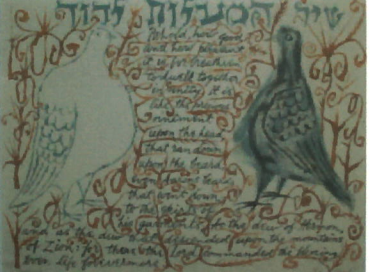 שיר המעלות
Behold, how good
and how pleasant
it is for brethren
to dwell together
in unity! it is
like the precious
ointment
upon the head,
that ran down
upon the beard,
even Aaron's beard
that went down
to the skirts of
his garments: As the dew of Hermon,
and as the dew that descended upon the mountains
of Zion: for there the Lord commanded the blessing
even life for evermore